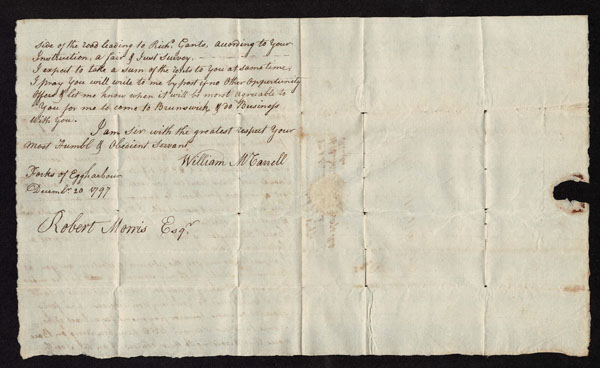 side of the road leading to Rich.d Gants, according to Your
Instruction, a fair & Just Survey.
I expect to take a sum of the rents to You at same time,
I pray You will write to me by post if no Other Oppertunity
Offers & let me know when it will be most agreable to
You for me to come to Brunswick & do Business
With You.
I am Sir with the greatest respect Your
Most Humbl & Obedient Servant
William McCarrell
Forks of Eggharbour
Decembr. 20 1797
Robert Morris Esqr.